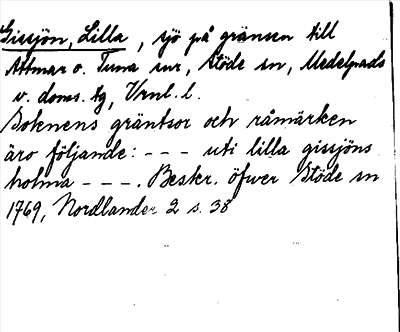 Gissjön, Lilla, sjö på gränsen till
Attmar o. Tuna snr, Stöde sn, Medelpads
v. doms. tg, Vrnl. l.
Soknens gräntsor och råmärken
äro följande: - - - uti lilla gissjöns
holma - - - . Beskr. öfwer Stöde sn
1769, Nordlander 2 s. 38